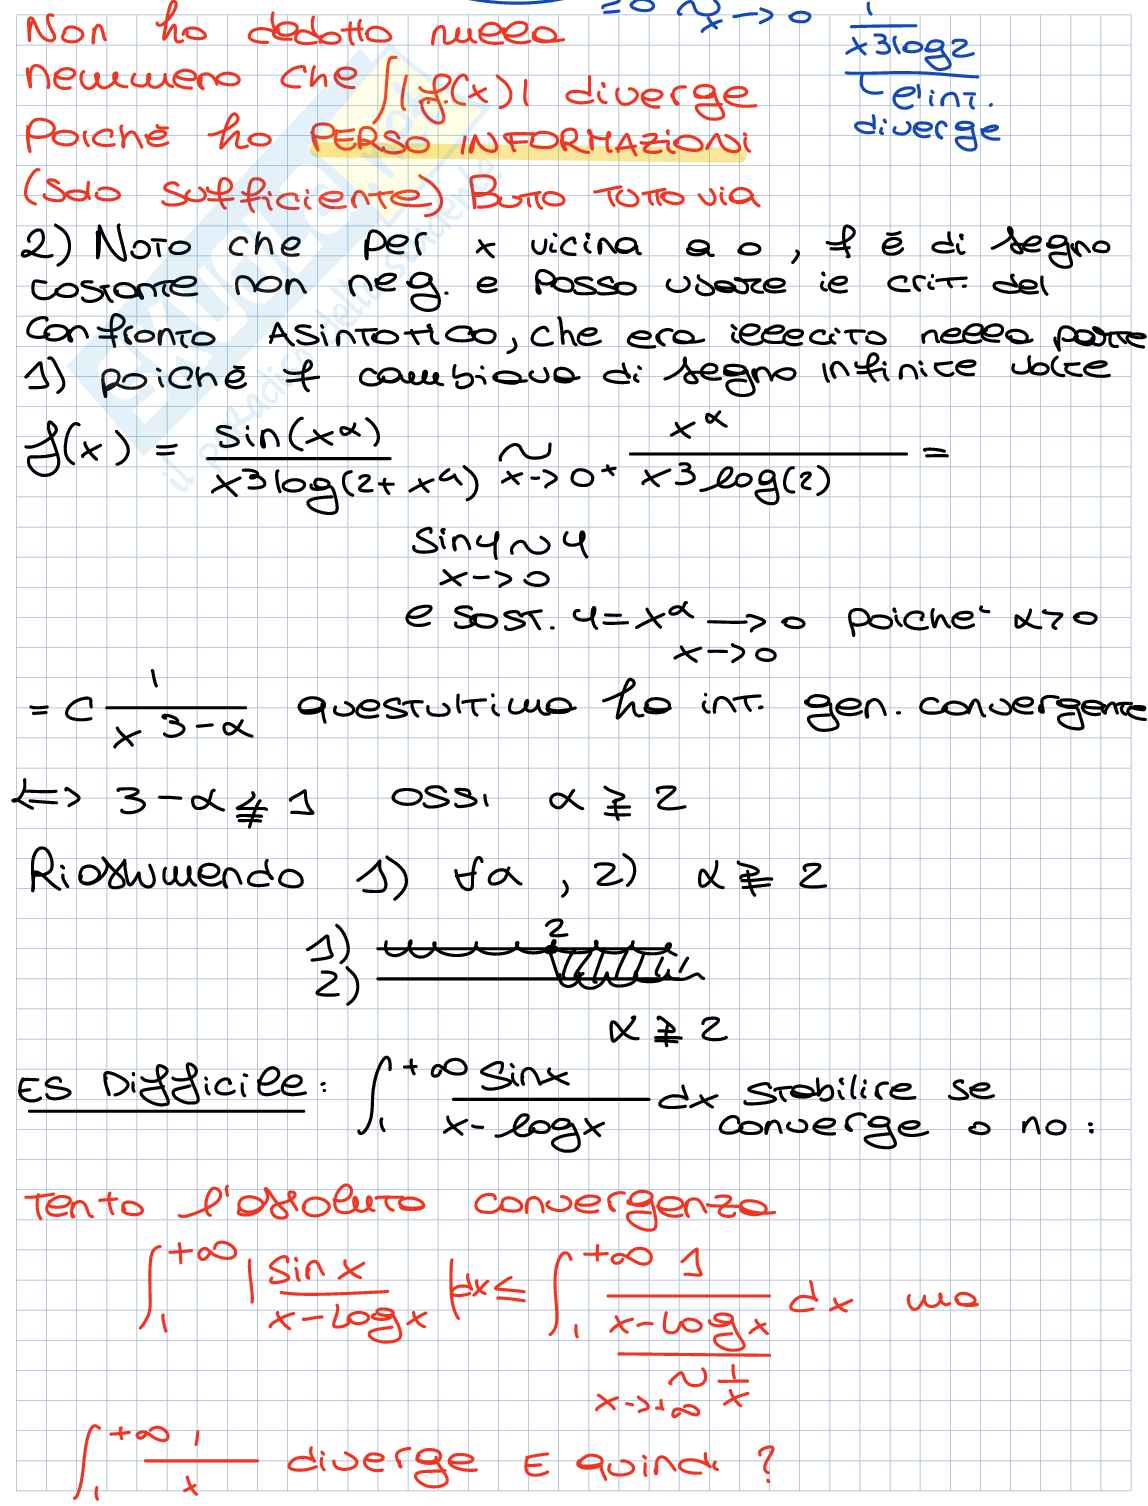 = 0 ~ x → 0 1
x3log2
Non ho dedotto nulla
e' int.
nemmeno che ∫|f(x)| diverge
diverge
Poichē ho PERSO INFORMAZIONI
(solo sufficiente) Butto tutto via
2) Noto che per x vicina a 0, f ē di segno
costante non neg. e posso usare il crit. del
confronto Asintotico, che era illecito nella parte
1) poichē f cambiava di segno infinite volte
f(x) = sin(x^α) / x3log(2+x^4) ~ x→0+ x^α / x^3 log(2) =
sin y ~ y
x→0
e sost. y = x^α → 0 poiche' α>0
x→0
= C 1 / x^{3-α} quest'ultima ha int. gen. convergente
⟺ 3-α ≨ 1 ossi α ≩ 2
Riassumendo 1) ∀α, 2) α ≩ 2
2
1)
2)
α ≩ 2
ES Difficile: ∫_1^{+∞} sinx / x-logx dx stabilire se
converge o no:
Tento l'assoluta convergenza
∫_1^{+∞} |sin x / x-logx| dx ≤ ∫_1^{+∞} 1 / x-logx dx ma
~ 1/x
x→+∞
∫_1^{+∞} 1/x diverge E quindi?